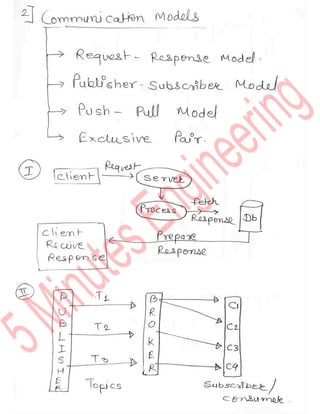 2] Communication Models
→ Request - Response Model.
→ Publisher - Subscriber Model
→ Push - Pull Model
→ Exclusive Pair.
I
Client
Request
Server
Process
Fetch
Response
Db
Client
Receive
Response
Prepare
Response
II
PUBLISHER
T1
T2
T3
Topics
BROKER
C1
C2
C3
C4
Subscriber/
consumer.
5 Minutes Engineering